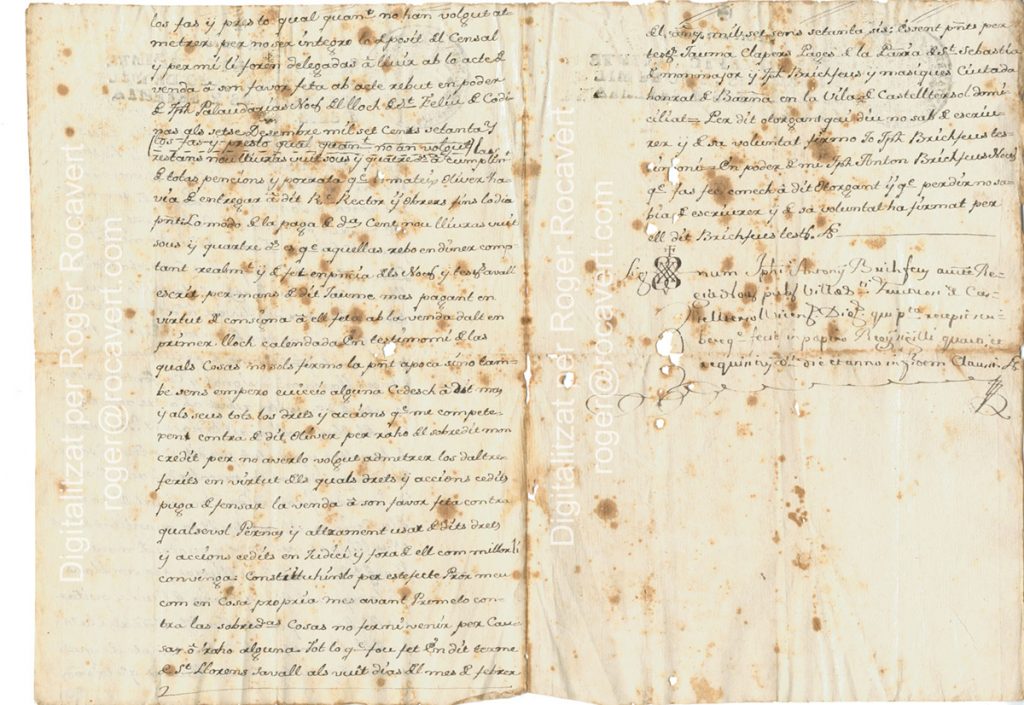 los fas ÿ presto qual quant. no han volgut at=
metrer per no ser integro lo Deposit del Censal
ÿ per mi li foren delegadas â lluir ab lo acte de
venda â son favor feta ab acte rebut en poder
de Jph Palaudarias Not. del lloch de St. Feliu de Codi
nas als setse Desembre mil set Cents setanta ÿ
(los fas ÿ presto qual quant. no an volgut) las
restans nou lliuras vuit sous ÿ quatre ds. â Cumplim.
de totas pencions ÿ porrata qe. lo mateix Oliver ha=
via de entregar â dit Rt. Rector ÿ Obrers fins lo dia
pnt: Lo modo de la paga de ds. Cent nou lliuras vuit
sous ÿ quatre ds. es qe. aquellas rebo en diner comp
tant realmt. ÿ de fet en pncia dels Not. ÿ test. avall
escrit per mans de dit Jaume mas pagant en
virtut de consigna â ell feta ab la venda dalt en
primer lloch calendada En testimoni de las
quals Cosas no sols fermo la pnt apoca sino tam=
be sens empero eviccio alguna Cedesch â dit mas
ÿ als seus tots los drets ÿ accions qe. me compete=
pent contra de dit Oliver per raho del sobredit mon
credit per no averlo volgut admetrer los dalt re=
ferits en virtut dels quals drets ÿ accions cedits
puga defensar la venda â son favor feta contra
qualsevol Pernas ÿ altrament usar de dits drets
ÿ accions cedits en Judici ÿ fora de ell com millor li
convinga: Constituhintlo per est efecte Pror meu
com en Cosa propria mes avant Prometo con=
tra las sobredas Cosas no fermi venir per Cau=
sa, ô raho alguna Tot lo qe. fou fet En dit terme
de St. Llorens savall als vuit dias del mes de febrer
del any mil set sens setanta sis: Essent pnts per
test. Jauma Clapers Pages de la Parra. de St. Sebastiâ
de monmajor ÿ Jph Brichfeus ÿ masiques Ciutada
honrat de Barna. en la Vila de Castelltersol domi=
ciliat= Per dit otorgant qui diu no sab de escriu=
rer ÿ de sa voluntat firmo Jo Jph Brichfeus tes=
timoni= En poder de mi Jph Anton Brichfeus Not.
qe. fas fee conech â dit Otorgant ÿ qe. per dir no sa=
bia de escriurer ÿ de sa voluntat ha firmat per
ell dit Brichfeus test.
Sig num Jphi Antony Brichfeus auctte Re=
gia Not. pubs Villæ de Cas=
telltersol Vicen. Diec. qui pta. recepi
fecit in papiro Regij sigilli quarti, et
requisitus, ds. die et anno in ÿdem Clausi.
Digitalitzat per Roger Rocavert
roger@rocavert.com
Digitalitzat per Roger Rocavert
roger@rocavert.com